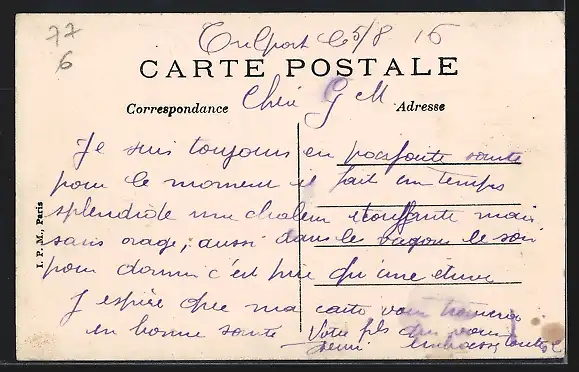 77
6
Trilport le 5/8 15
CARTE POSTALE
Correspondance
Chère G M
Adresse
Je suis toujours en parfaite santé
pour le moment il fait un temps
splendide une chaleur étouffante mais
sans orage, aussi dans les wagons le soir
pour dormir c'est pire qu'une étuve
J espère que ma carte vous trouvera
en bonne santé Votre fils qui vous
embrasse toutes
I. P. M., Paris